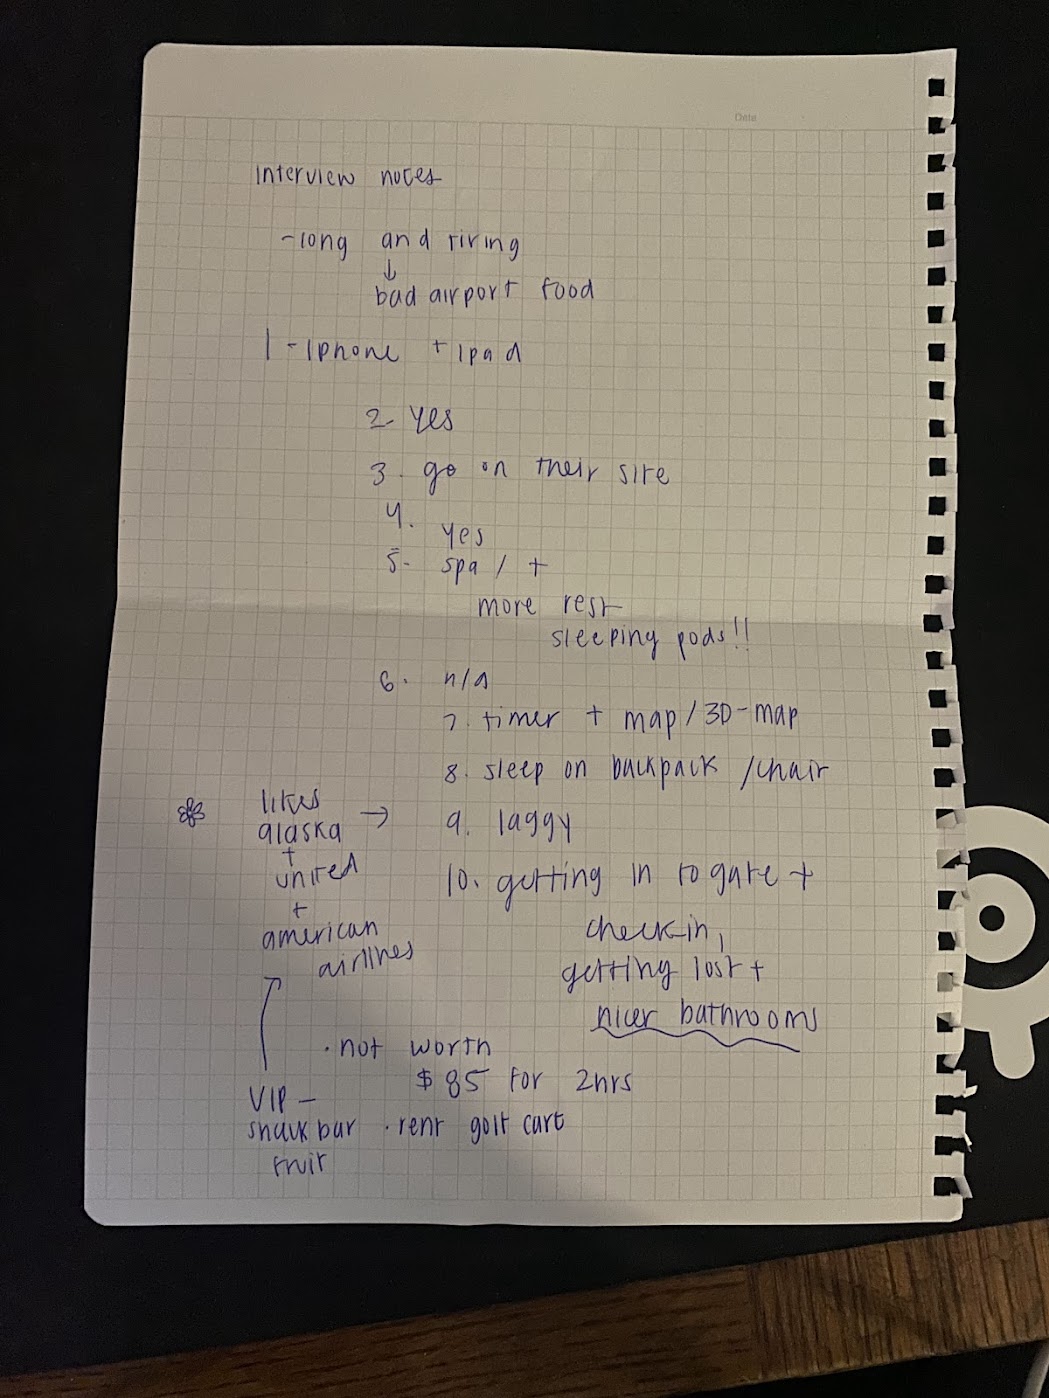 Date
Interview notes
- long and tiring
↓
bad airport food
1 - iphone + ipad
2. yes
3. go on their site
4. yes
5. spa / +
more rest
sleeping pods!!
6. n/a
7. timer + map / 3D-map
8. sleep on backpack / chair
likes
alaska → 9. laggy
+
united
10. getting in to gate +
+
american
airlines
check in,
getting lost +
nicer bathrooms
· not worth
$85 for 2hrs
VIP -
snack bar · rent golf cart
fruit